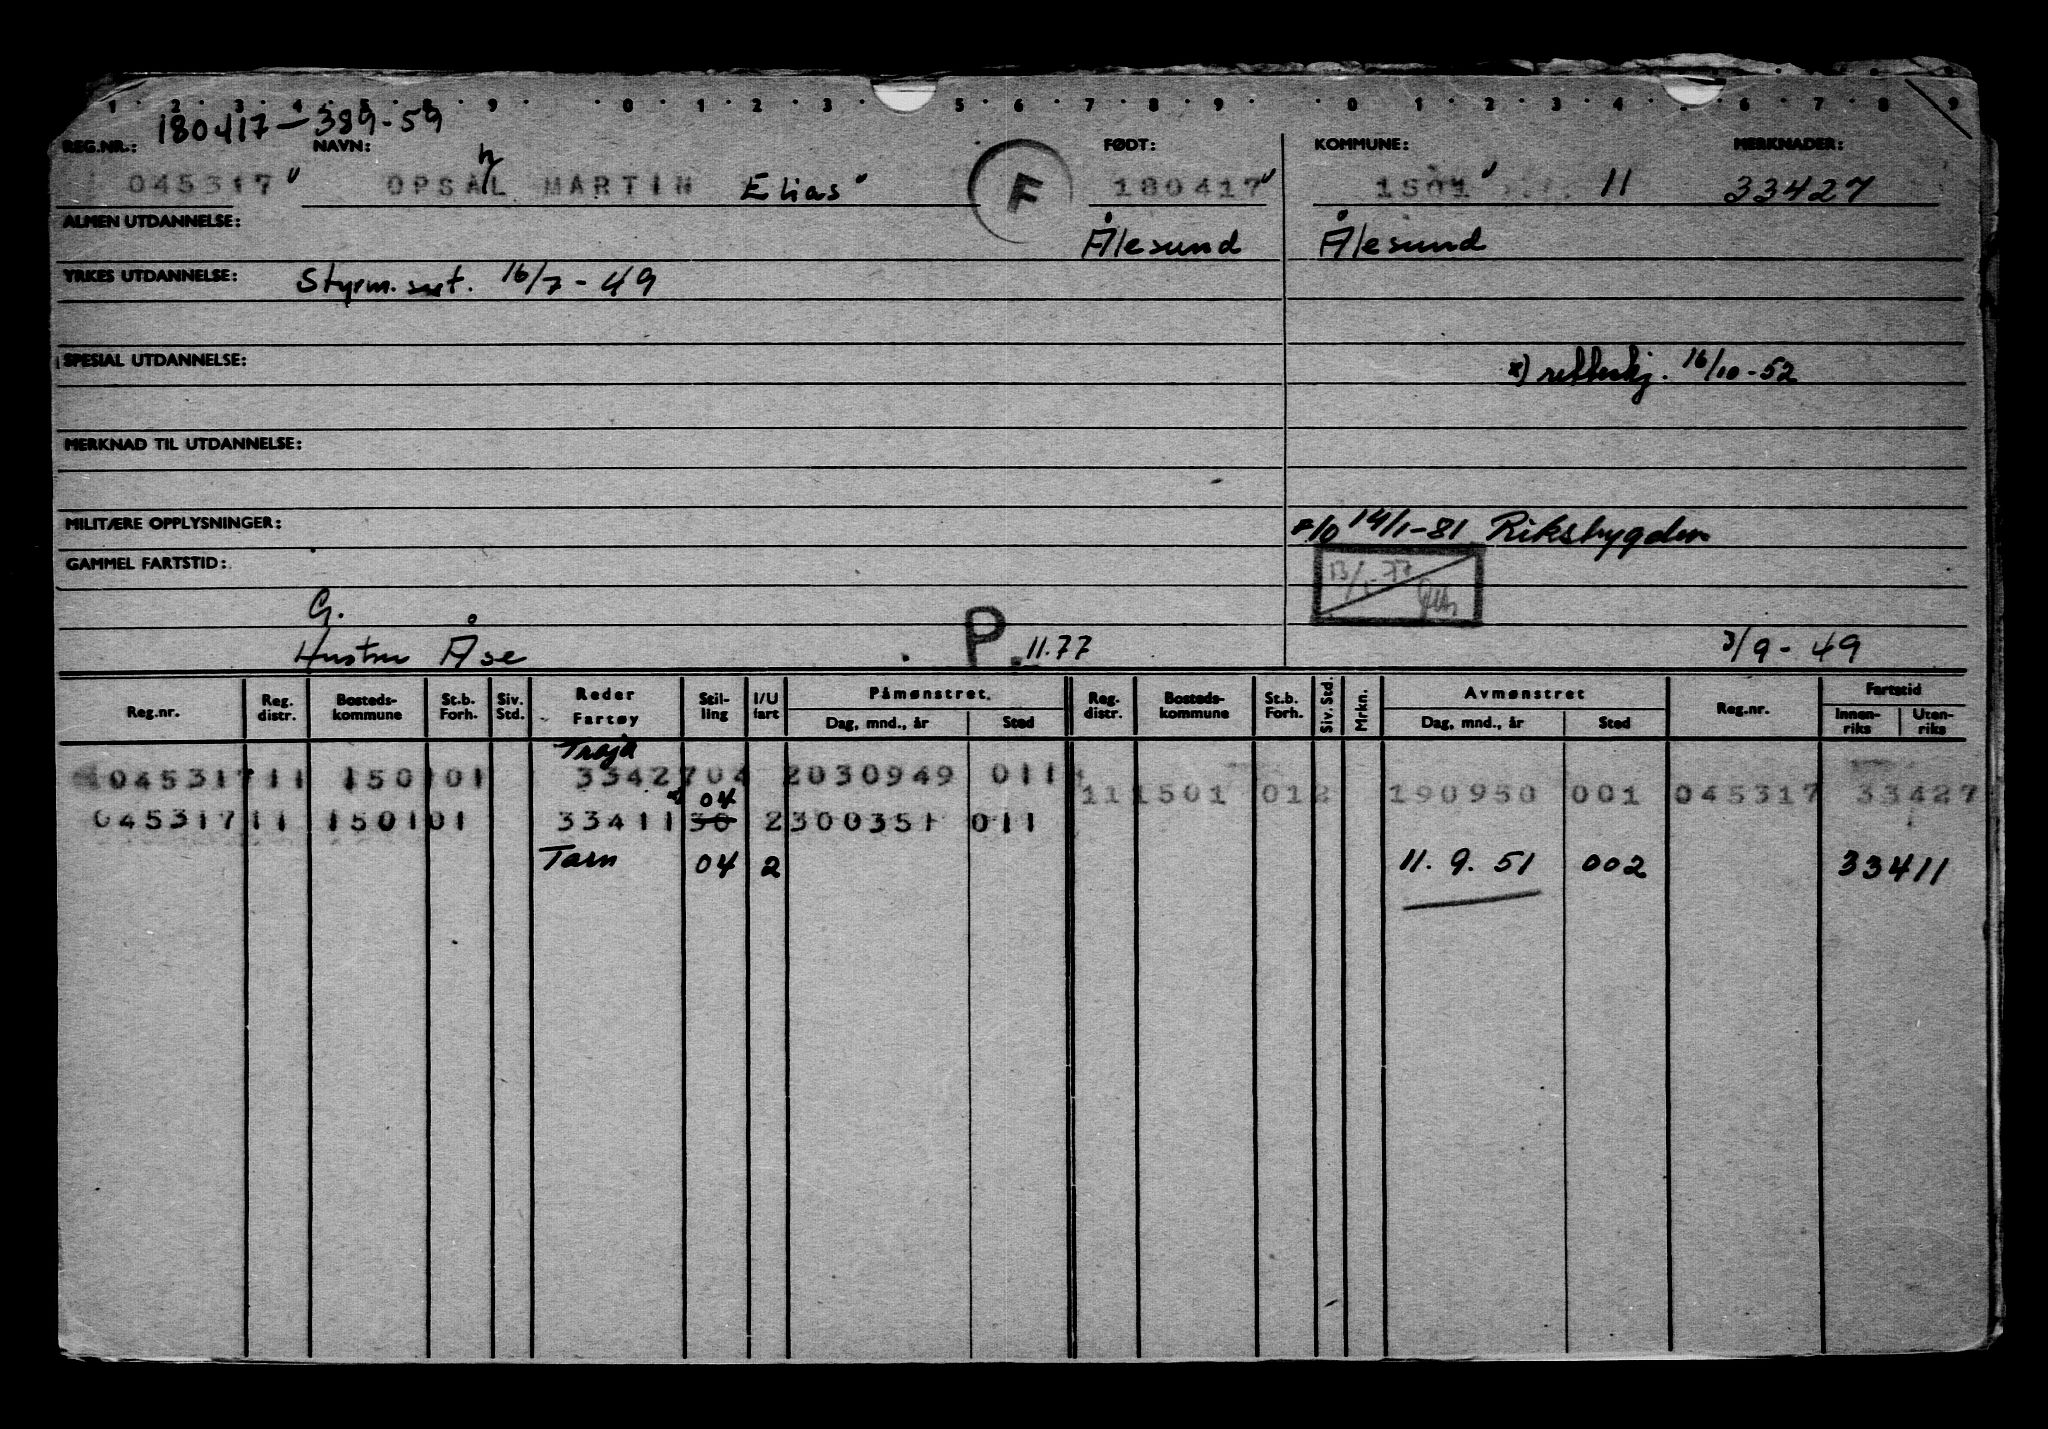 1 · 2 · 3 · 4 · 5 · 8 · 9 · · 0 · 1 · 2 · 3 · 5 · 6 · 7 · 8 · 9 · · 0 · 1 · 2 · 3 · 4 · 6 · 7 · 8 · 9
180417-389-59
REG.NR.: NAVN: FØDT: KOMMUNE: MERKNADER:
h
045317 OPSAL MARTIN Elias F 180417 1501 11 33427
ALMEN UTDANNELSE: Ålesund Ålesund
YRKES UTDANNELSE: Styrm. sert. 16/7-49
SPESIAL UTDANNELSE: x) 16/10-52
MERKNAD TIL UTDANNELSE:
MILITÆRE OPPLYSNINGER: 14/1-81 Riksbygden
GAMMEL FARTSTID: 13/1-77
G.
Hustru Åse P. 11.77 3/9-49
Reg.nr. Reg. distr. Bosteds-kommune St.b. Forh. Siv. Std. Reder Fartøy Stil-ling I/U fart Påmønstret. Dag, mnd., år Sted Reg. distr. Bosteds-kommune St.b. Forh. Siv. Std. Mrkn. Avmønstret Dag, mnd., år Sted Reg.nr. Fartstid Innen-riks Uten-riks
Troja
045317 11 1501 01 33427 04 2 030949 011 11 1501 012 190950 001 045317 33427
x) 04
045317 11 1501 01 33411 30 2 300351 011
Tarn 04 2 11. 9. 51 002 33411